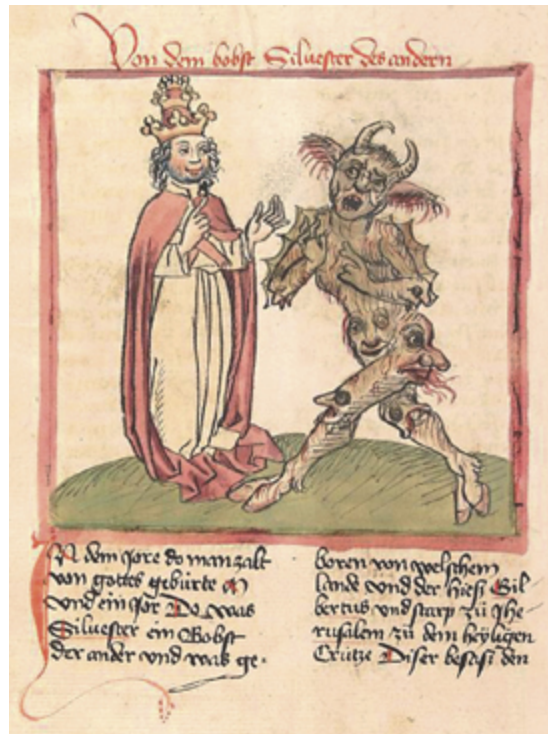 Von dem bobst Siluester des andern
IN dem Jore do man zalt
von gottes gebürte M
vnd ein Jor Do was
Siluester ein Bobst
der ander vnd was ge-
boren von welschem
lande vnd der hiess Gil
bertus vnd starp zü Jhe
rusalem zü dem heyligen
Crütze Diser besass den